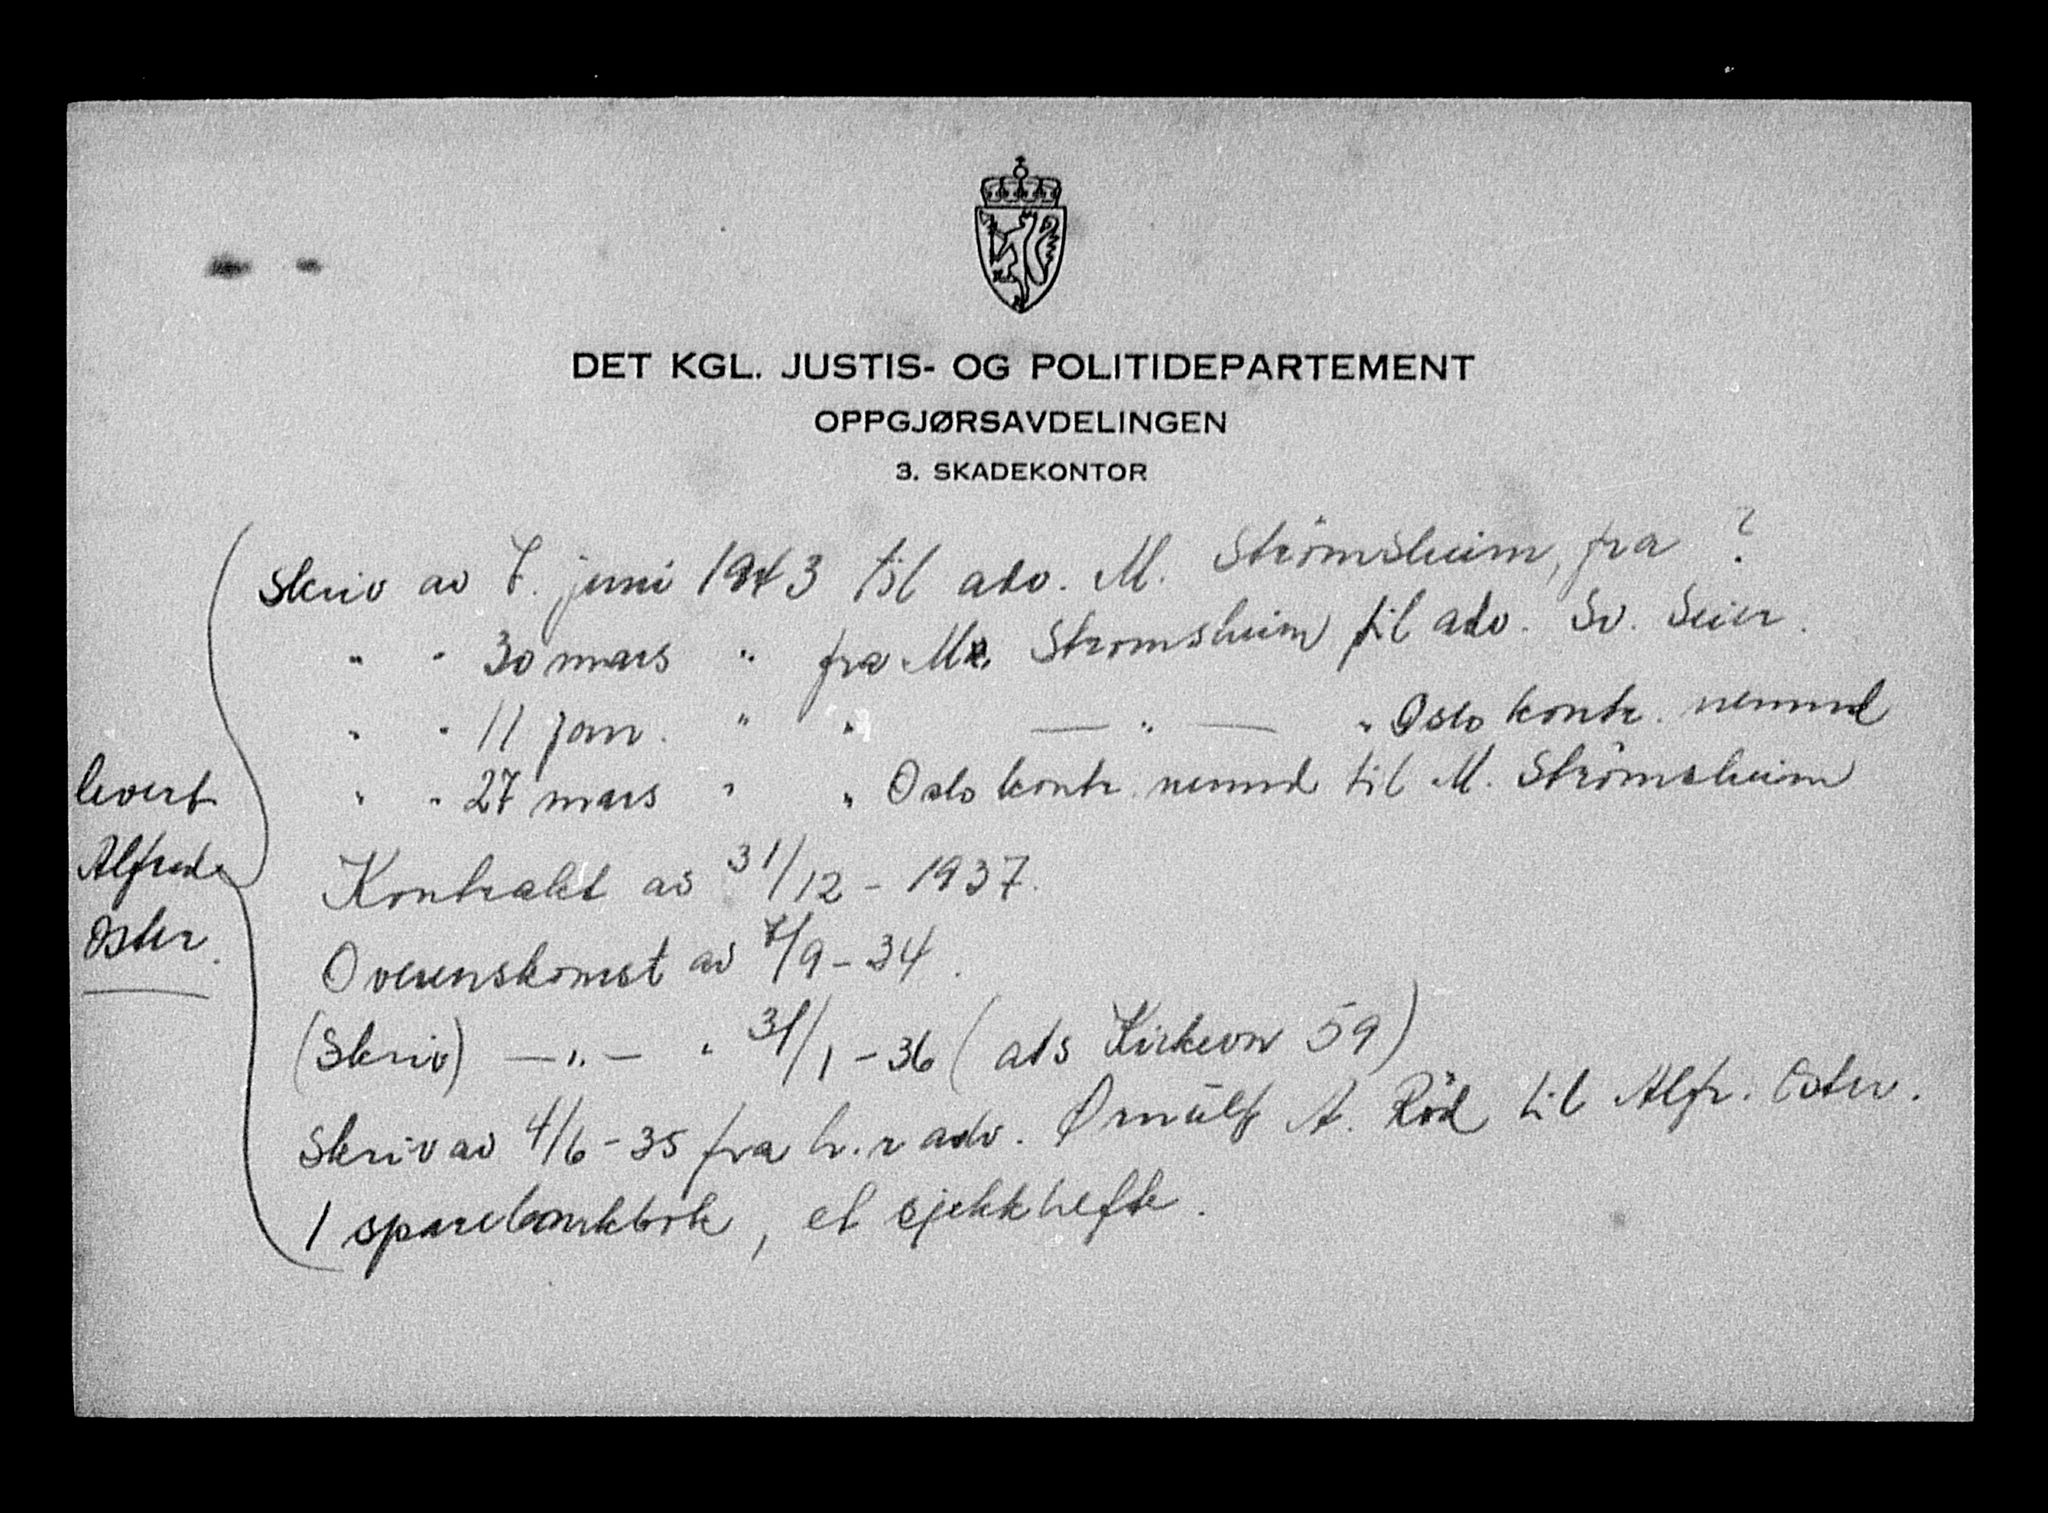 DET KGL. JUSTIS- OG POLITIDEPARTEMENT
OPPGJØRSAVDELINGEN
3. SKADEKONTOR
Skriv av 7. juni 1943 til adv. M. Strömsheim, fra ?
" " 30 mars " fra M. Stromsheim til adv. Sv. Seier.
" " 11 jan. " " — " — " Oslo kontr. nemnd
" " 27 mars " " Oslo kontr. nemnd til M. Strömsheim
Kontrakt av 31/12 - 1937.
Overenskomst av 7/9 - 34.
(Skriv) — " — " 31/1 - 36 (ats Kirkevn 59)
Skriv av 4/6 - 35 fra h.r adv. Ørnulf A. Röd til Alfr. Oster.
1 sparebankbok, et sjekkhefte.
levert
Alfred
Oster.